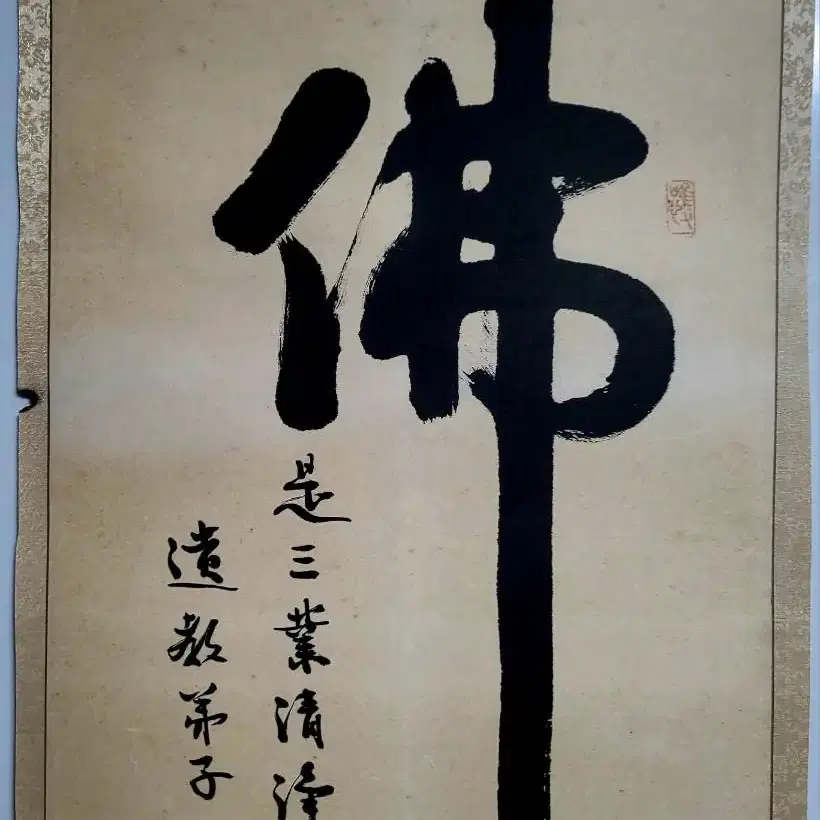 佛
是三業清淨
遺教弟子